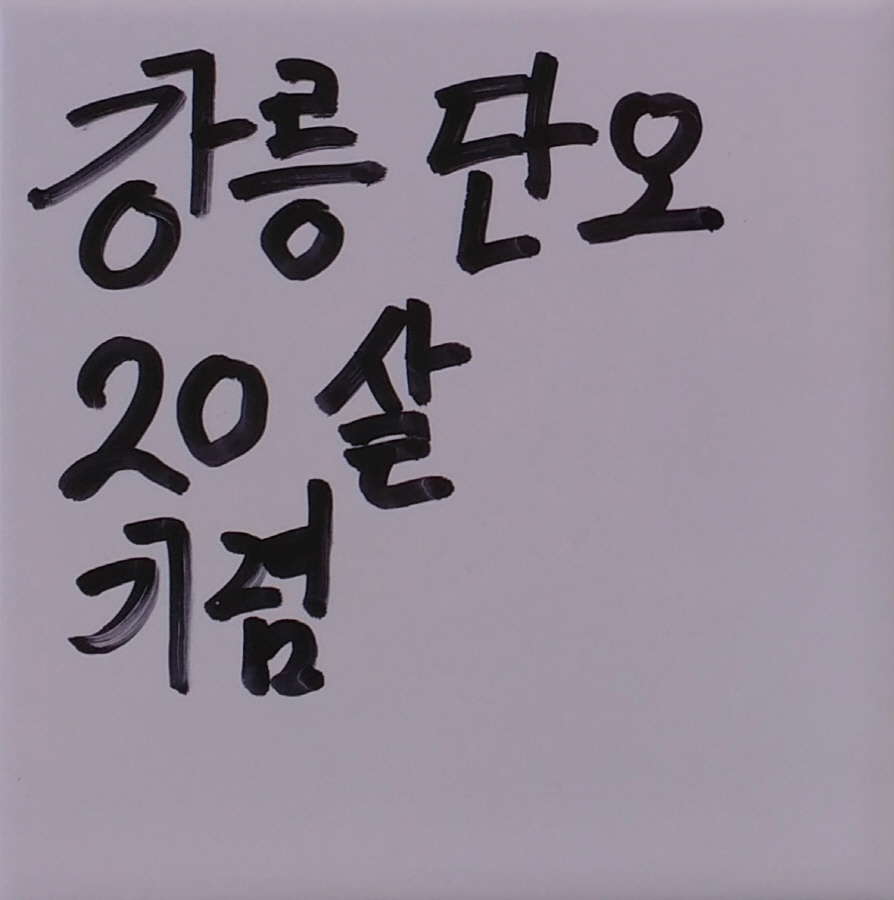 강릉 단오
20 살
기렴